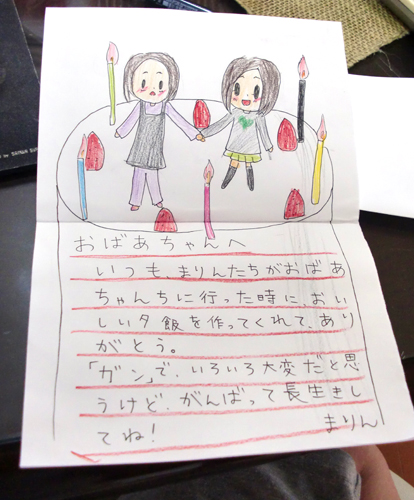 おばあちゃんへ
いつも、まりんたちがおばあ
ちゃんちに行った時に、おい
しい夕飯を作ってくれて、あり
がとう。
「ガン」で、いろいろ大変だと思
うけど、がんばって長生きし
てね!
まりん